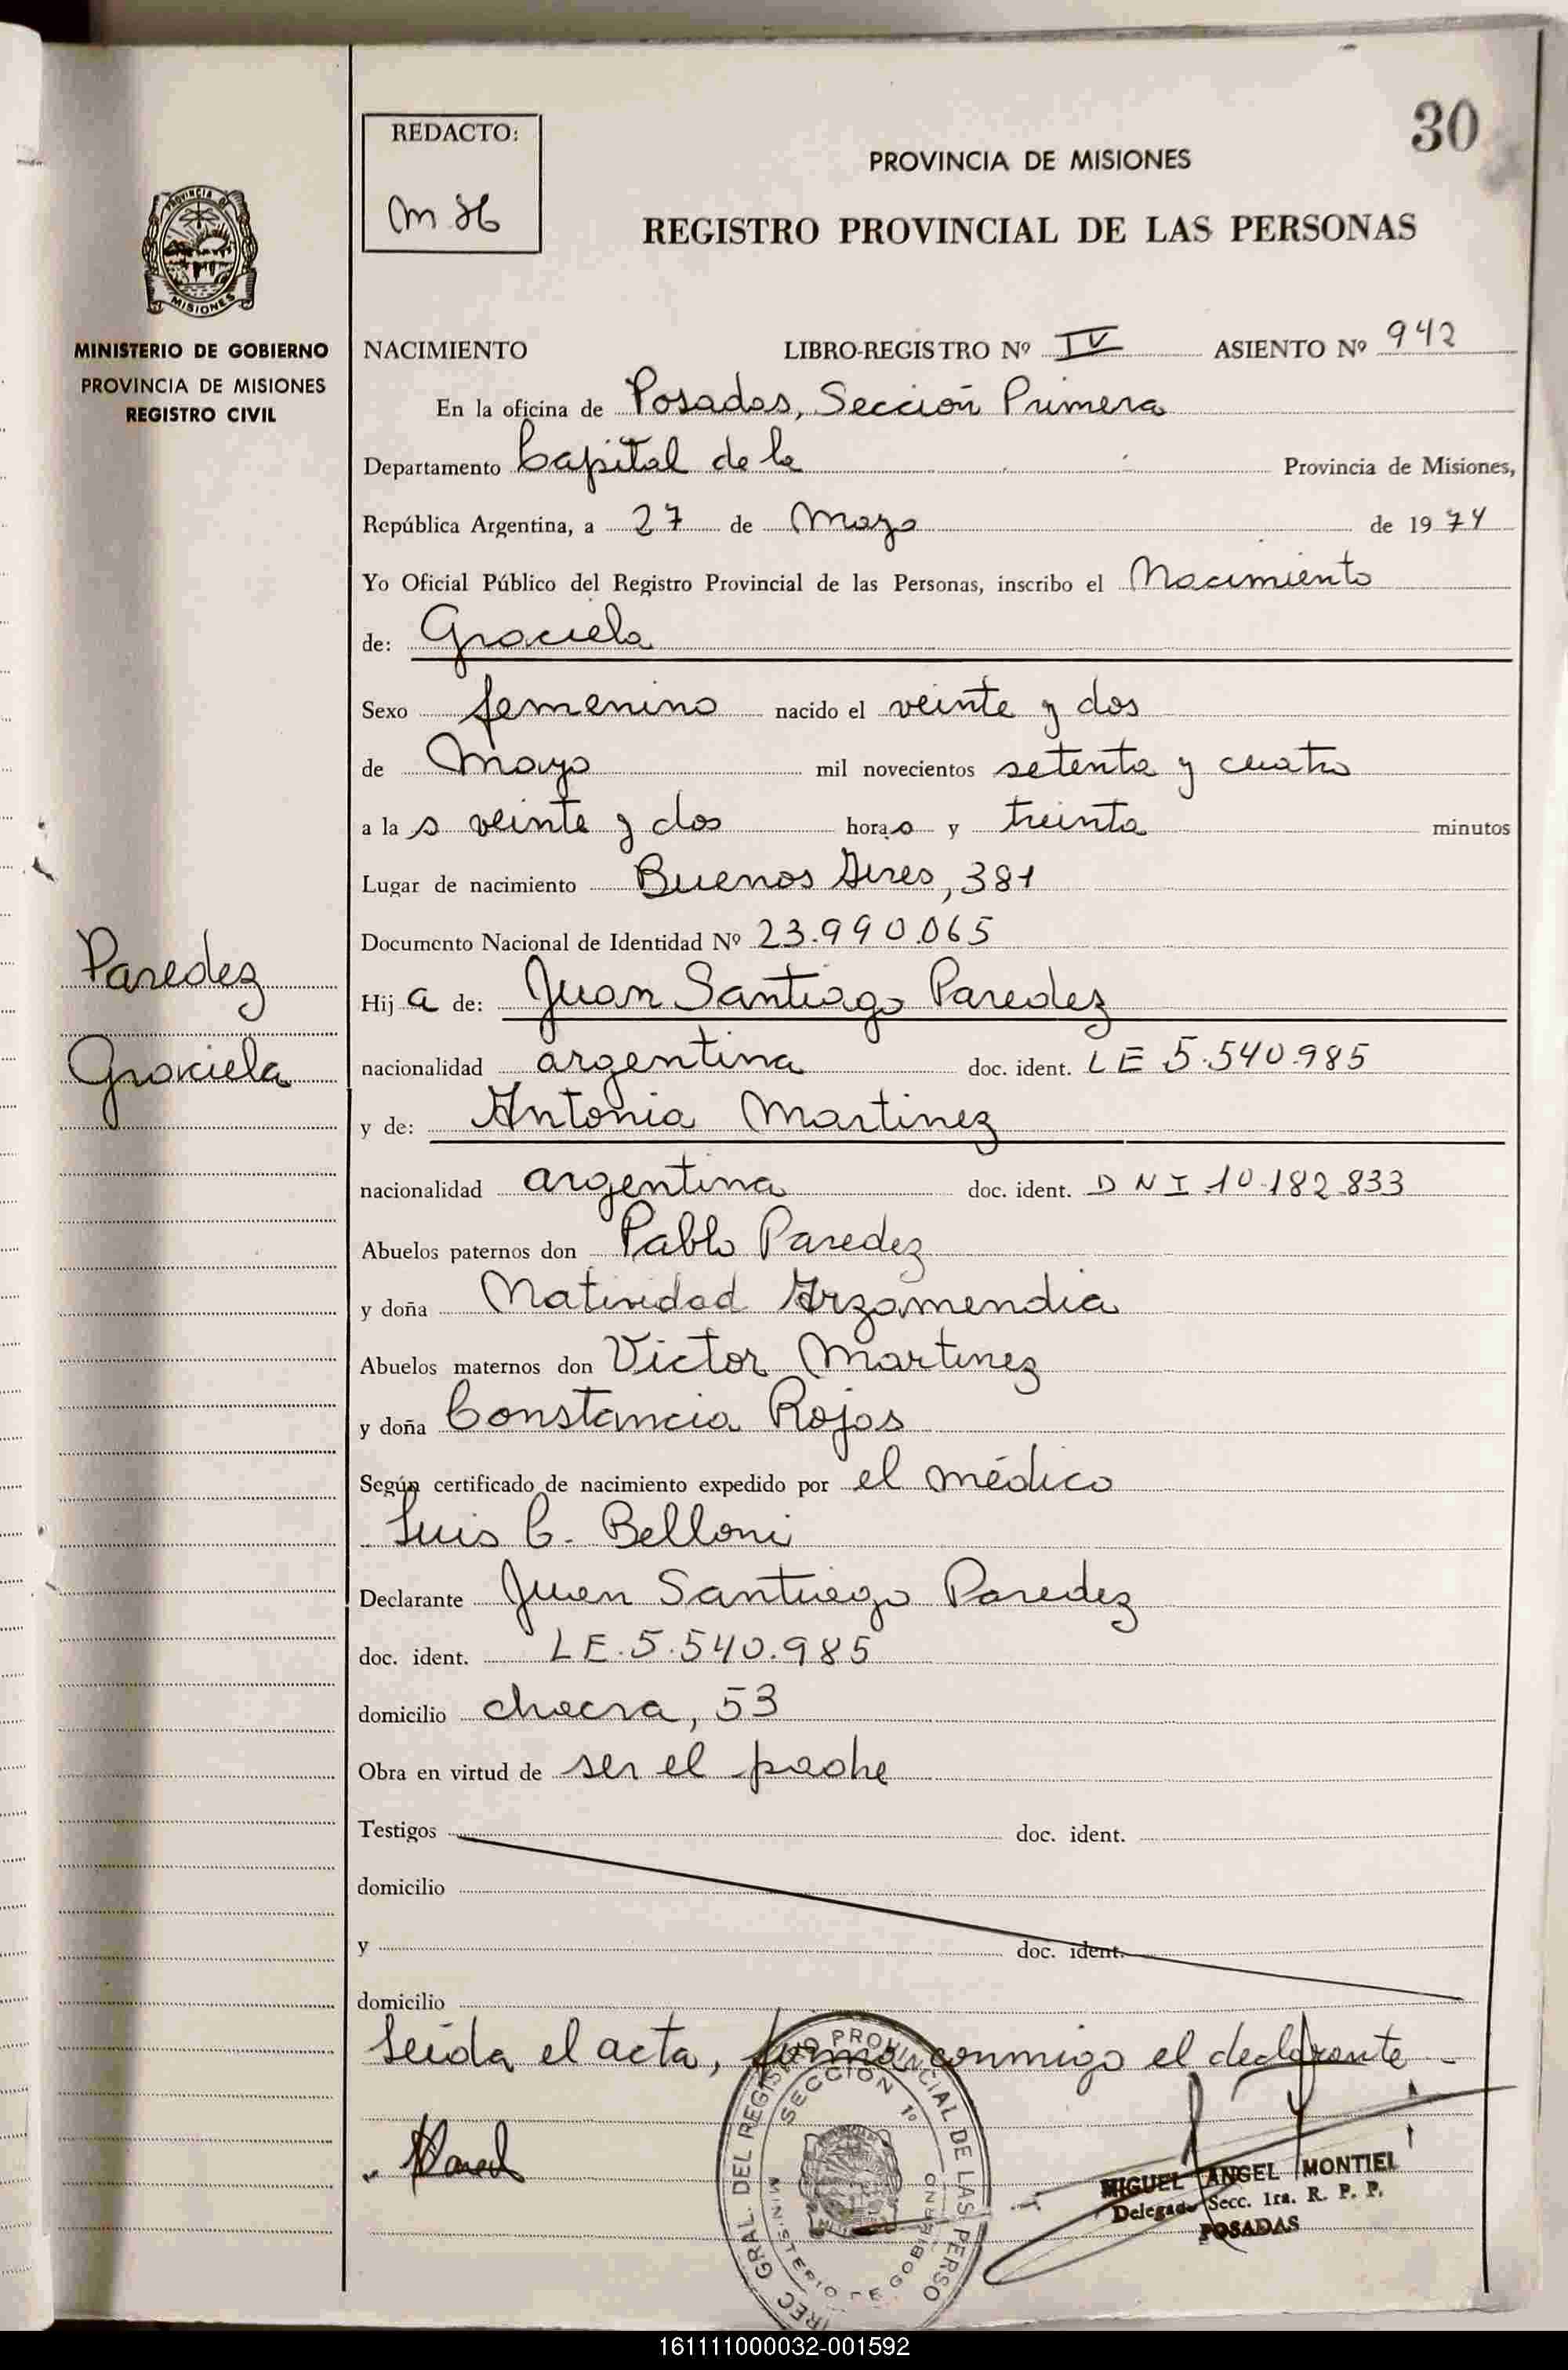 30
REDACTO:
M H
PROVINCIA DE MISIONES
REGISTRO PROVINCIAL DE LAS PERSONAS
PROVINCIA DE
MISIONES
MINISTERIO DE GOBIERNO
PROVINCIA DE MISIONES
REGISTRO CIVIL
NACIMIENTO LIBRO-REGISTRO Nº IV ASIENTO Nº 942
En la oficina de Posadas, Sección Primera
Departamento Capital de la Provincia de Misiones,
República Argentina, a 27 de Mayo de 1974
Yo Oficial Público del Registro Provincial de las Personas, inscribo el Nacimiento
de: Graciela
Sexo femenino nacido el veinte y dos
de Mayo mil novecientos setenta y cuatro
a la s veinte y dos hora s y treinta minutos
Lugar de nacimiento Buenos Aires, 381
Documento Nacional de Identidad Nº 23.990.065
Paredez
Graciela
Hij a de: Juan Santiago Paredez
nacionalidad argentina doc. ident. LE 5.540.985
y de: Antonia Martinez
nacionalidad argentina doc. ident. DNI 10.182.833
Abuelos paternos don Pablo Paredez
y doña Natividad Arzamendia
Abuelos maternos don Victor Martinez
y doña Constancia Rojas
Según certificado de nacimiento expedido por el médico
Luis C. Belloni
Declarante Juan Santiago Paredez
doc. ident. LE.5.540.985
domicilio chacra, 53
Obra en virtud de ser el padre
Testigos doc. ident.
domicilio
y doc. ident.
domicilio
Leida el acta, firma conmigo el declarante
DIREC GRAL. DEL REGISTRO PROVINCIAL DE LAS PERSO
SECCION 1º
MINISTERIO DE GOBIERNO
MIGUEL ANGEL MONTIEL
Delegado Secc. 1ra. R. P. P.
POSADAS
161111000032-001592